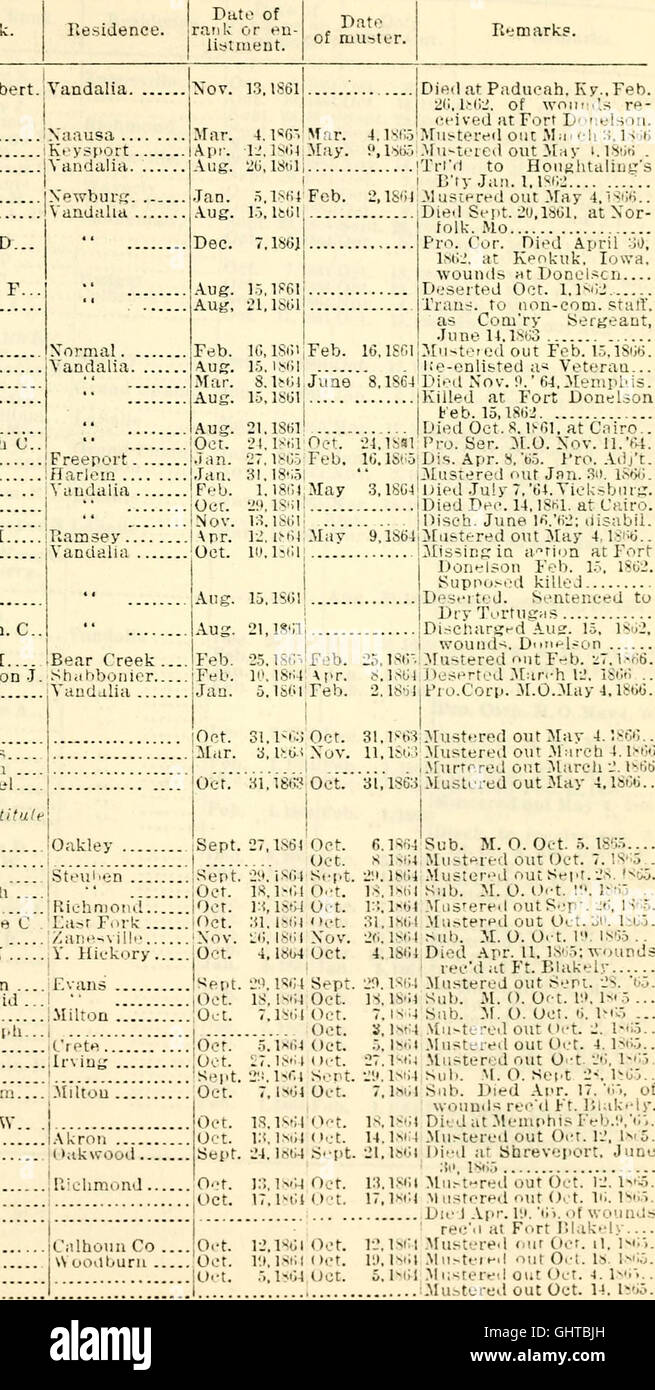 k. Residence. Date of rank or enlistment. Date of muster. Remarks.
bert. Vandalia. Nov. 13,1861 Died at Paducah, Ky., Feb.
26,1862, of wounds re-
ceived at Fort Donelson.
Naausa Mar. 4,1865 Mar. 4,1865 Mustered out March 3,1866
Keysport Apr. 12,1864 May. 9,1865 Mustered out May
Vandalia. Aug. 26,1861 Trf'd to Houghtaling's
B'ty Jan. 1,1862
Newburg. Jan. 5,1864 Feb. 2,1864 Mustered out May 4,1866..
Vandalia Aug. 15,1861 Died Sept. 20,1861, at Nor-
folk, Mo
D... “ Dec. 7,1861 Pro. Cor. Died April 30,
1862, at Keokuk, Iowa,
wounds at Donelson....
F... “ Aug. 15,1861 Deserted Oct. 1,1862
“ Aug, 21,1861 Trans. to non-com. staff,
as Com'ry Sergeant,
June 14,1863
Normal. Feb. 16,1861 Feb. 16,1861 Mustered out Feb. 15,1866.
Vandalia. Aug. 15,1861 Re-enlisted as Veteran...
“ Mar. 8,1864 June 8,1864 Died Nov. 9,'64, Memphis.
“ Aug. 15,1861 Killed at Fort Donelson
Feb. 15,1862.
“ Aug. 21,1861 Died Oct. 8,1861, at Cairo..
h C.. “ Oct. 24,1861 Oct. 24,1861 Pro. Ser. M.O. Nov. 11,'64.
Freeport Jan. 27,1865 Feb. 16,1865 Dis. Apr. 8,'65. Pro. Adj't.
Harlem Jan. 31,1865 “ Mustered out Jan. 30, 1866.
Vandalia Feb. 1,1864 May 3,1864 Died July 7,'64, Vicksburg.
“ Oct. 29,1861 Died Dec. 14,1861, at Cairo.
“ Nov. 13,1861 Disch. June 16,'62; disabil.
Ramsey Apr. 12,1864 May 9,1864 Mustered out May 4,1866..
Vandalia Oct. 10,1861 Missing in action at Fort
Donelson Feb. 15, 1862.
Supposed killed
“ Aug. 15,1861 Deserted. Sentenced to
Dry Tortugas
n. C.. “ Aug. 21,1861 Discharged Aug. 15, 1862,
wounds, Donelson
Bear Creek Feb. 25,1865 Feb. 25,1865 Mustered out Feb. 27,1866.
on J. Shabbonier. Feb. 10,1864 Apr. 8,1864 Deserted March 12, 1866
Vandalia Jan. 5,1861 Feb. 2,1864 Pro.Corp. M.O.May 4,1866.
Oct. 31,1863 Oct. 31,1863 Mustered out May 4,1866..
s. Mar. 3,1863 Nov. 11,1863 Mustered out March 4,1866
n Murtered out March 2,1866
el.. Oct. 31,1863 Oct. 31,1863 Mustered out May 4,1866..
titute
Oakley Sept. 27,1864 Oct. 6,1864 Sub. M. O. Oct. 5, 1865
Oct. 8 1864 Mustered out Oct. 7, 1865
Steuben Sept. 29,1864 Sept. 29,1864 Mustered out Sept. 28, 1865.
h “ Oct. 18,1864 Oct. 18,1864 Sub. M. O. Oct. 19, 1865
Richmond Oct. 13,1864 Oct. 13,1864 Mustered out Sep. 26, 1865.
e C East Fork Oct. 31,1864 Oct. 31,1864 Mustered out Oct. 30, 1865.
Zanesville, Nov. 26,1864 Nov. 26,1864 Sub. M. O. Oct. 19, 1865
Y. Hickory Oct. 4,1864 Oct. 4,1864 Died Apr. 11, 1865; wounds
rec'd at Ft. Blakely
n Evans Sept. 29,1864 Sept. 29,1864 Mustered out Sept. 28, '65.
id “ Oct. 18,1864 Oct. 18,1864 Sub. M. O. Oct. 19, 1865
Milton Oct. 7,1864 7,1864 Sub. M. O. Oct. 6, 1865
ph... Oct. 3,1864 Mustered out Oct. 2, 1865..
Crete Oct. 5,1864 Oct. 5,1864 Mustered out Oct. 4, 1865.
Irving Oct. 27,1864 Oct. 27,1864 Mustered out Oct. 26, 1865.
Sept. 29,1864 Sept. 29,1864 Sub. M. O. Sept. 28, 1865.
m... Milton Oct. 7,1864 Oct. 7,1864 Sub. Died Apr. 17, '65, of
wounds rec'd Ft. Blakely.
W.. Oct. 18,1864 Oct. 18,1864 Died at Memphis Feb.9,'65.
Akron Oct. 13,1864 Oct. 14,1864 Mustered out Oct. 12, 1865.
Oakwood Sept. 24,1864 Sept. 21,1864 Died at Shreveport, June
30, 1865
Richmond Oct. 13,1864 Oct. 13,1864 Mustered out Oct. 12, 1865.
Oct. 17,1864 Oct. 17,1864 Mustered out Oct. 16, 1865.
Died Apr. 19, '65, of wounds
rec'd at Fort Blakely
Calhoun Co Oct. 12,1864 Oct. 12,1864 Mustered out Oct. 11, 1865.
Woodburn Oct. 19,1864 Oct. 19,1864 Mustered out Oct. 18, 1865.
Oct. 5,1864 Oct. 5,1864 Mustered out Oct. 4, 1865..
Mustered out Oct. 14, 1865.
alamy stock photo
GHTBJH
www.alamy.com